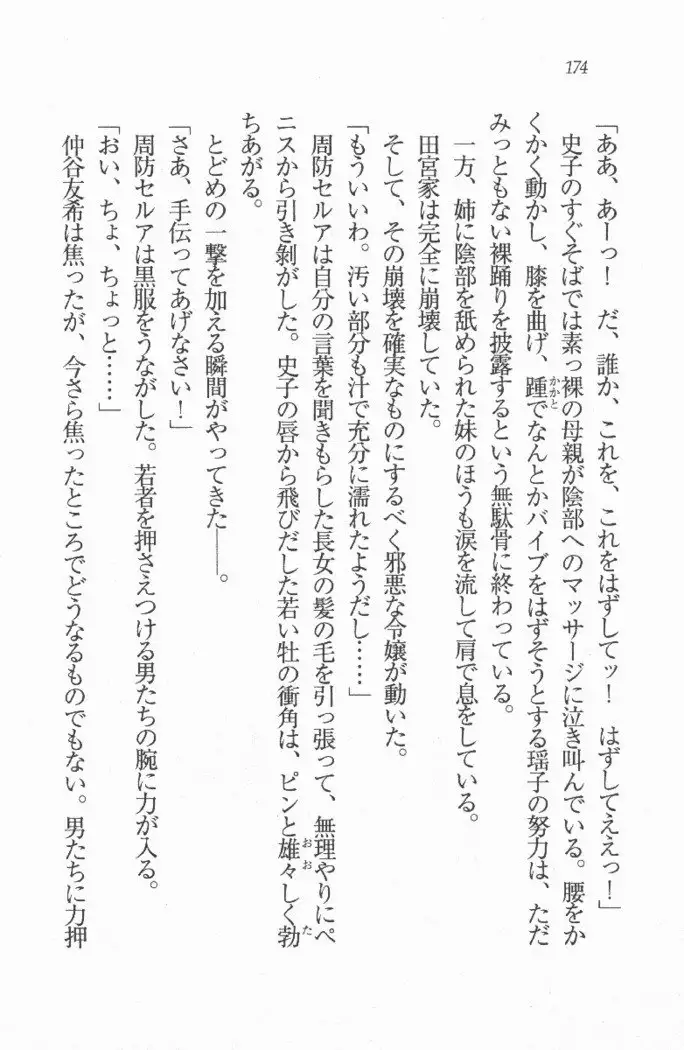 174
「ああ、あーっ！　だ、誰か、これを、これをはずしてッ！　はずしてええっ！」
史子のすぐそばでは素っ裸の母親が陰部へのマッサージに泣き叫んでいる。腰をか
くかく動かし、膝を曲げ、踵でなんとかバイブをはずそうとする瑶子の努力は、ただ
かかと
みっともない裸踊りを披露するという無駄骨に終わっている。
一方、姉に陰部を舐められた妹のほうも涙を流して肩で息をしている。
田宮家は完全に崩壊していた。
そして、その崩壊を確実なものにするべく邪悪な令嬢が動いた。
「もういいわ。汚い部分も汁で充分に濡れたようだし……」
周防セルアは自分の言葉を聞きもらした長女の髪の毛を引っ張って、無理やりにペ
ニスから引き剝がした。史子の唇から飛びだした若い牡の衝角は、ピンと雄々しく勃
おお
た
ちあがる。
とどめの一撃を加える瞬間がやってきた——。
「さあ、手伝ってあげなさい！」
周防セルアは黒服をうながした。若者を押さえつける男たちの腕に力が入る。
「おい、ちょ、ちょっと……」
仲谷友希は焦ったが、今さら焦ったところでどうなるものでもない。男たちに力押